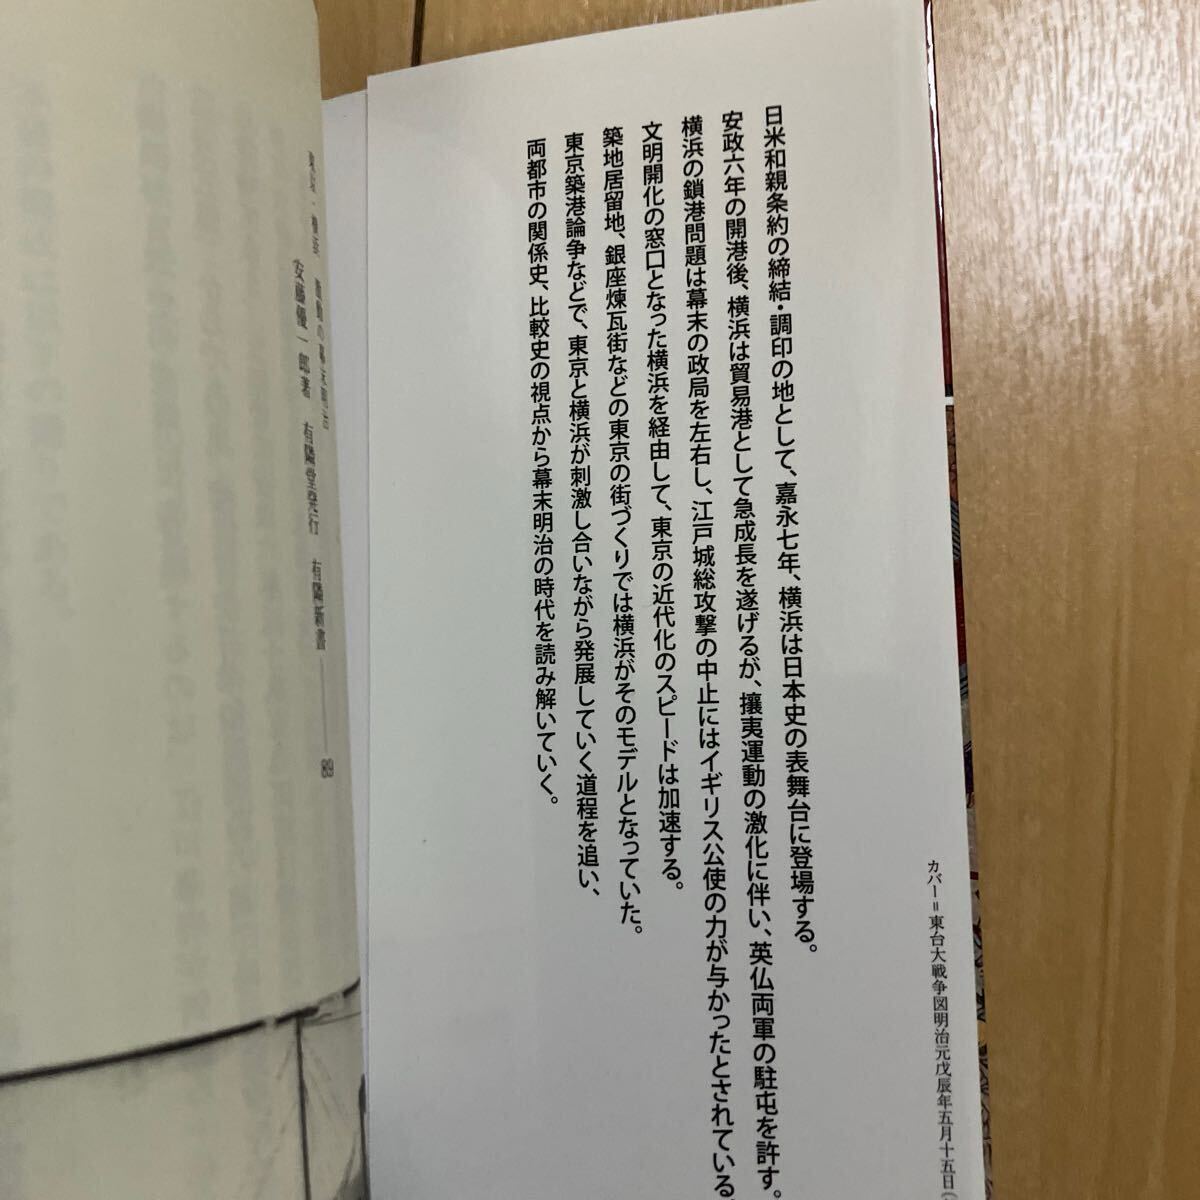 日米和親条約の締結・調印の地として、嘉永七年、横浜は日本史の表舞台に登場する。
安政六年の開港後、横浜は貿易港として急成長を遂げるが、攘夷運動の激化に伴い、英仏両軍の駐屯を許す。
横浜の鎖港問題は幕末の政局を左右し、江戸城総攻撃の中止にはイギリス公使の力が与かったとされている
文明開化の窓口となった横浜を経由して、東京の近代化のスピードは加速する。
築地居留地、銀座煉瓦街などの東京の街づくりでは横浜がそのモデルとなっていた。
東京築港論争などで、東京と横浜が刺激し合いながら発展していく道程を追い、
両都市の関係史、比較史の視点から幕末明治の時代を読み解いていく。
カバー=東台大戦争図明治元戊辰年五月十五日(
東京・横浜 激動の幕末明治
安藤優一郎著 有隣堂発行 有隣新書